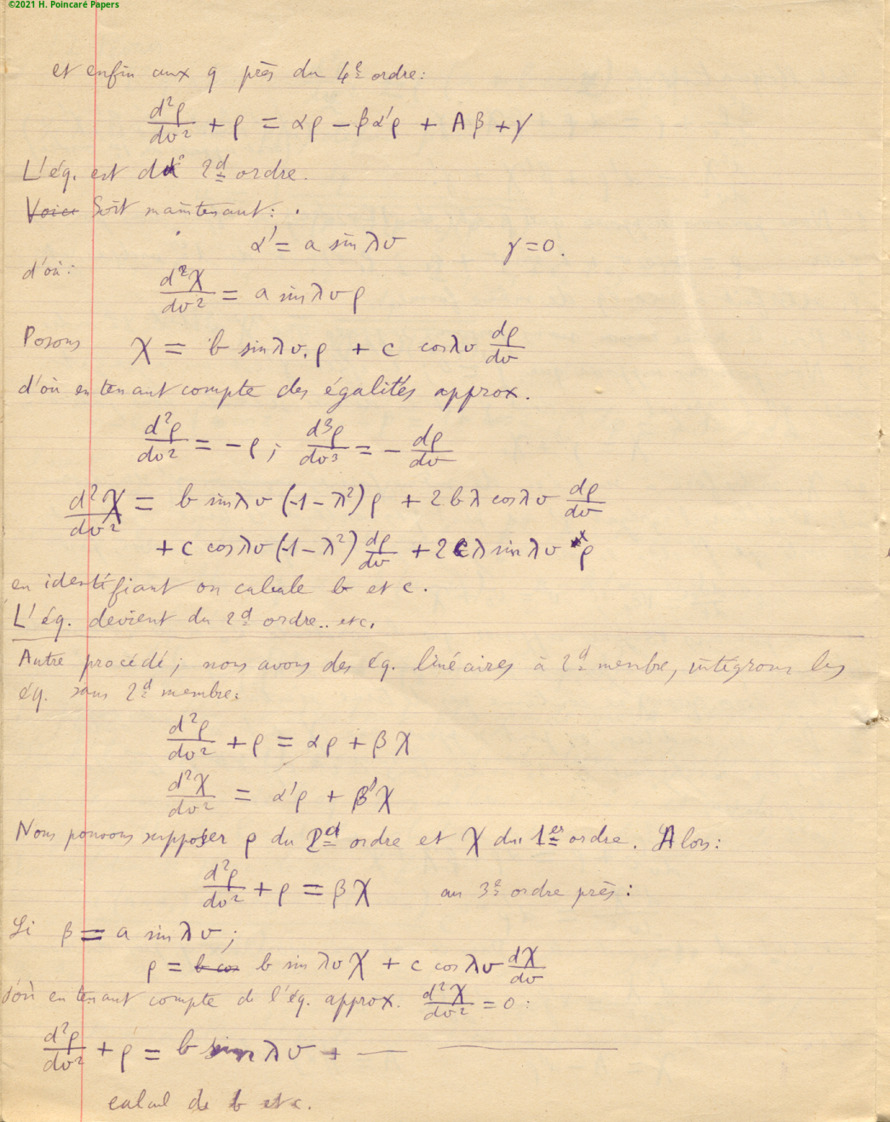 ©2021 H. Poincaré Papers
et enfin aux q près du 4e ordre:
d²ρ/dv² + ρ = αρ − βα'ρ + Aβ + γ
L'éq. est du 2d ordre.
Voici Soit maintenant:
α' = a sin λv γ = 0.
d'où:
d²χ/dv² = a sin λv ρ
Posons χ = b sin λv.ρ + c cos λv dρ/dv
d'où en tenant compte des égalités approx.
d²ρ/dv² = −ρ; d³ρ/dv³ = − dρ/dv
d²χ/dv² = b sin λv (−1−λ²)ρ + 2bλ cos λv dρ/dv
+ c cos λv (−1−λ²) dρ/dv + 2cλ sin λv ρ
en identifiant on calcule b et c.
L'éq. devient du 2d ordre.. etc.
Autre procédé; nous avons des éq. linéaires à 2d membre, intégrons les
éq. sans 2d membre:
d²ρ/dv² + ρ = αρ + βχ
d²χ/dv² = α'ρ + β'χ
Nous pouvons supposer ρ du 2d ordre et χ du 1er ordre. Alors:
d²ρ/dv² + ρ = βχ au 3e ordre près:
Si β = a sin λv;
ρ = b cos b sin λv χ + c cos λv dχ/dv
d'où en tenant compte de l'éq. approx. d²χ/dv² = 0:
d²ρ/dv² + ρ = b sin λv + —
calcul de b et c.